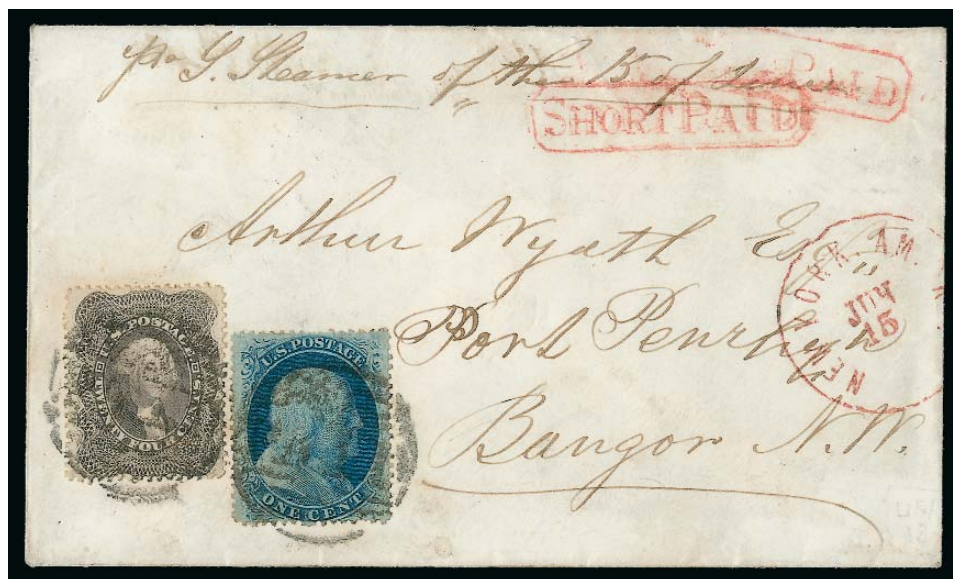 pr S. Steamer of the 15 of
PAID
SHORT PAID
Arthur Wyatt Esq
Port Penrhyn
Bangor N.W.
NEW YORK AM.
JUL
15
U.S. POSTAGE
TWENTY FOUR CENTS
U.S. POSTAGE
ONE CENT